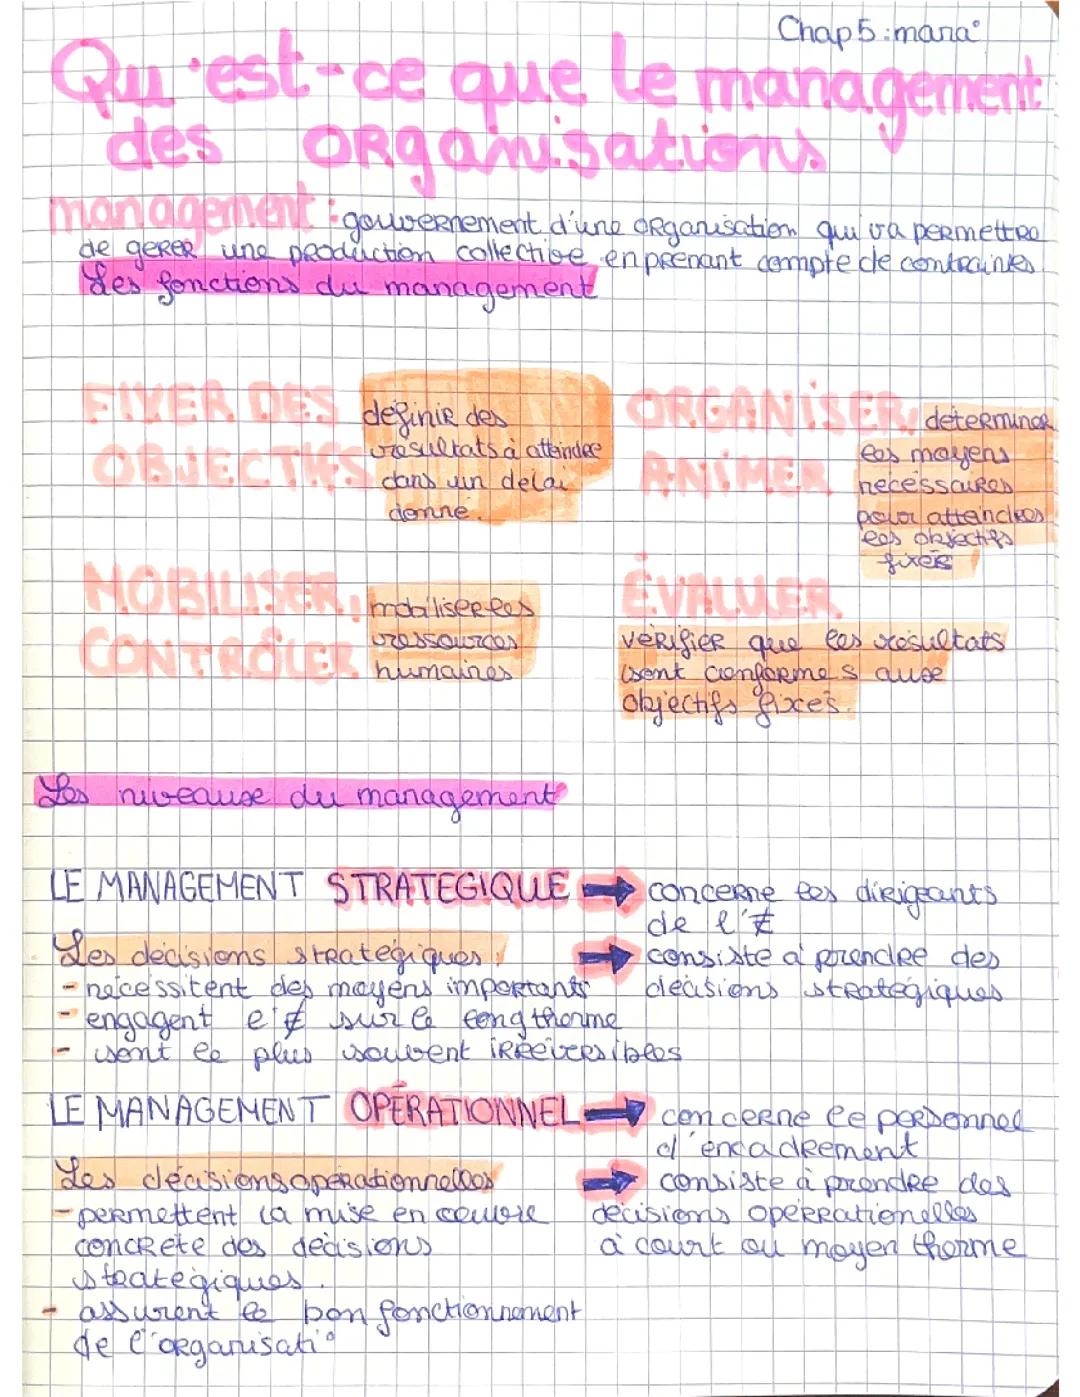 Chap 5 : mana°
Qu'est-ce que le management
des ORganisations
management : gouvernement d'une ORganisation qui va permettre
de gérer une production collective en prenant compte de contraintes
Les fonctions du management
FIXER DES
OBJECTIFS
définir des
résultats à atteindre
dans un délai
donné.
ORGANISER,
ANIMER
déterminer
les moyens
nécessaires
pour atteindres
les objectifs
fixés
MOBILISER,
CONTRÔLER
mobiliser les
ressources
humaines
ÉVALUER
vérifier que les résultats
sont conformes aux
objectifs fixés.
Les niveaux du management
LE MANAGEMENT STRATEGIQUE → concerne les dirigeants
de l'≠
Les décisions stratégiques : → consiste à prendre des
- nécessitent des moyens importants décisions stratégiques
- engagent l'≠ sur le long therme
- sont le plus souvent irréversibles
LE MANAGEMENT OPÉRATIONNEL → concerne le personnel
d'encadrement
Les décisions opérationnelles → consiste à prendre des
- permettent la mise en oeuvre décisions opérrationelles
concrète des décisions à court ou moyen therme
stratégiques.
- assurent le bon fonctionnement
de l'organisati°